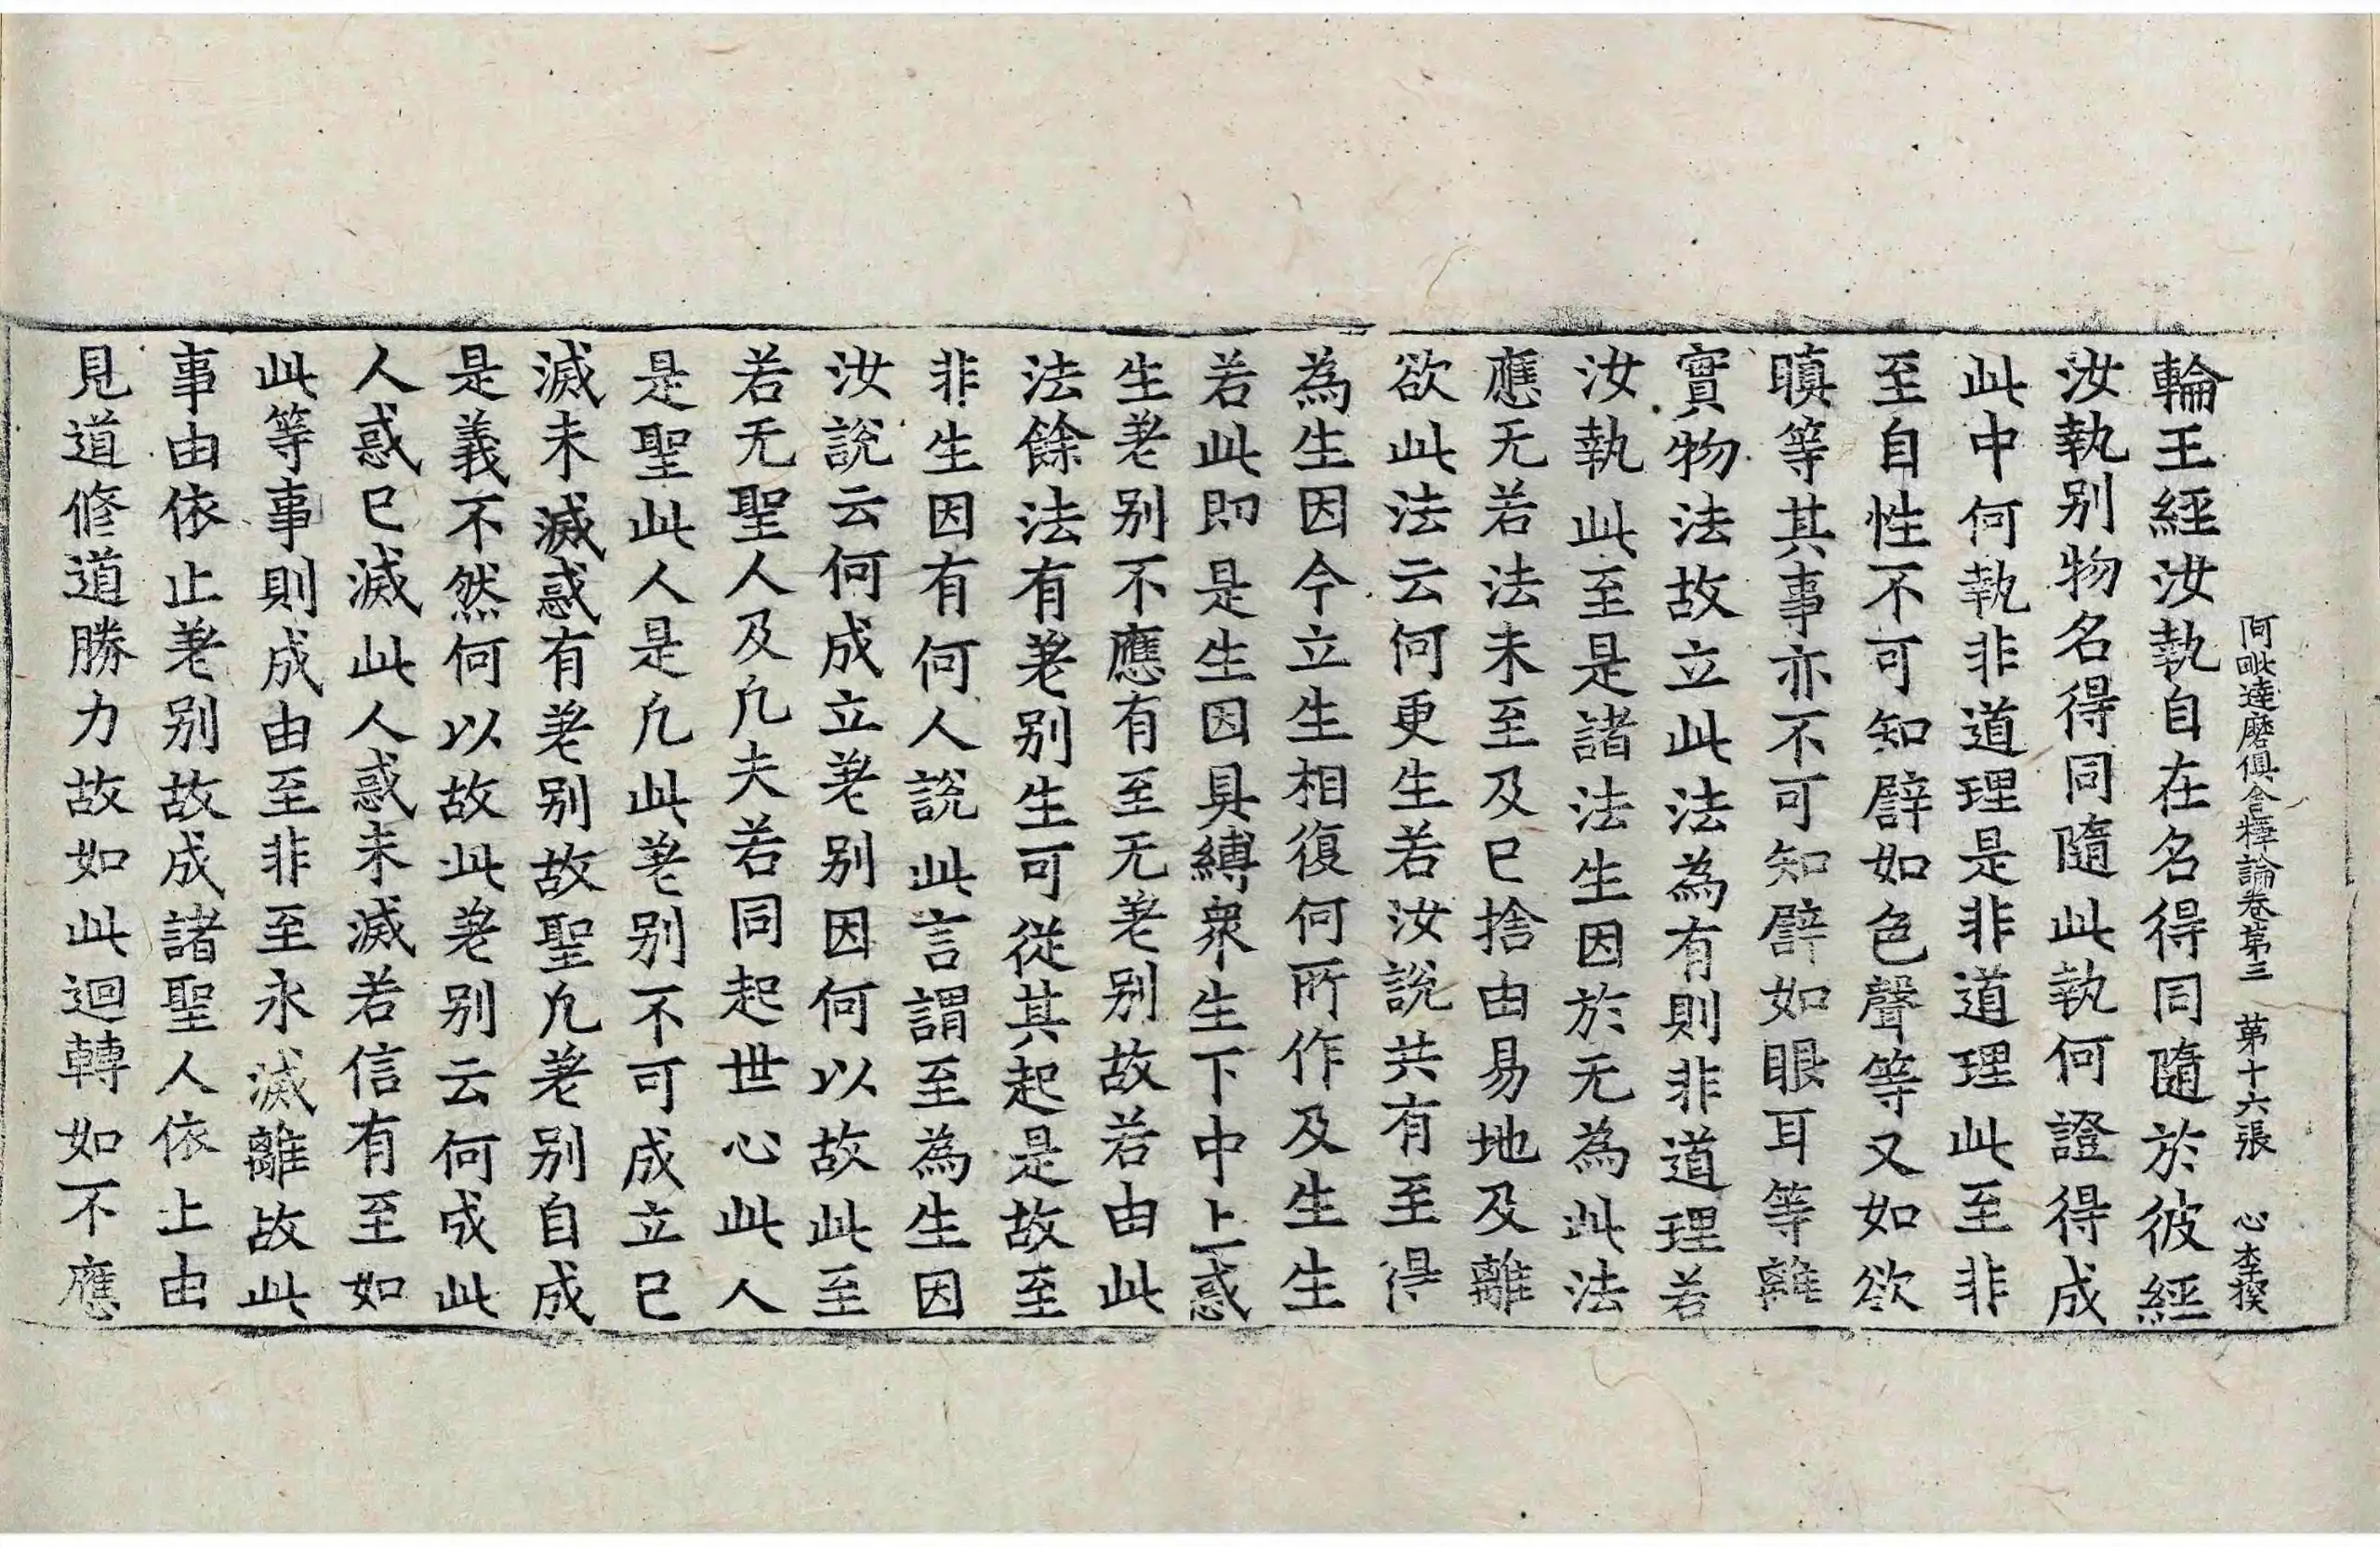 阿毗達磨俱舍釋論卷第三　第十六張　心　李揆
輪王經汝執自在名得同隨於彼經
汝執别物名得同隨此執何證得成
此中何執非道理是非道理此至非
至自性不可知譬如色聲等又如欲
瞋等其事亦不可知譬如眼耳等離
實物法故立此法為有則非道理若
汝執此至是諸法生因於无為此法
應无若法未至及已捨由易地及離
欲此法云何更生若汝說共有至得
為生因今立生相復何所作及生生
若此即是生因具縛衆生下中上惑
生差别不應有至无差别故若由此
法餘法有差别生可從其起是故至
非生因有何人說此言謂至為生因
汝說云何成立差别因何以故此至
若无聖人及凡夫若同起世心此人
是聖此人是凡此差别不可成立已
滅未滅惑有差别故聖凡差别自成
是義不然何以故此差别云何成此
人惑已滅此人惑未滅若信有至如
此等事則成由至非至永滅離故此
事由依止差别故成諸聖人依上由
見道修道勝力故如此迴轉如不應